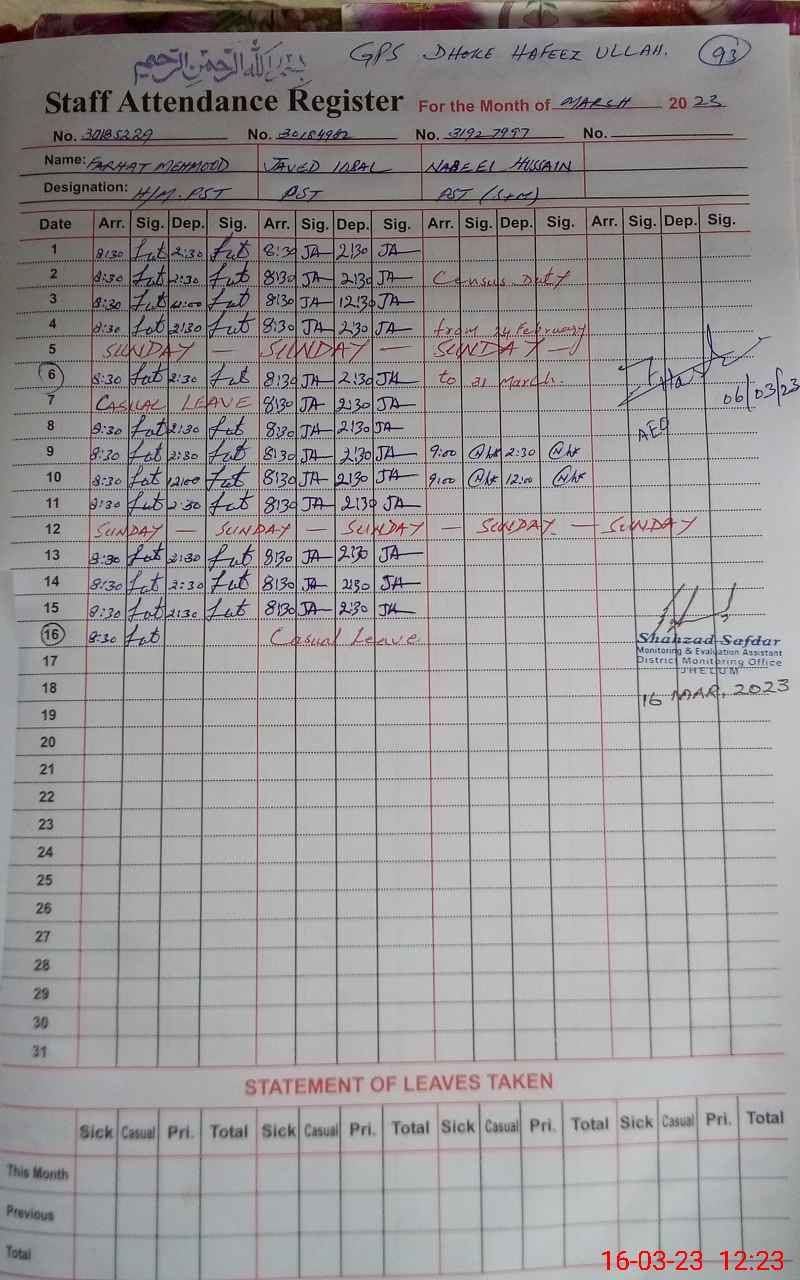 بسم الله الرحمن الرحيم GPS DHOKE HAFEEZ ULLAH. 93
Staff Attendance Register For the Month of MARCH 20 23
No. 30185229 No. 30184982 No. 31927997 No.
Name: FARHAT MEHMOOD JAVED IQBAL NABEEL HUSSAIN
Designation: H/M. PST PST PST (S+M)
Date Arr. Sig. Dep. Sig. Arr. Sig. Dep. Sig. Arr. Sig. Dep. Sig. Arr. Sig. Dep. Sig.
1 8:30 Fut 2:30 Fut 8:30 JA 2:30 JA
2 8:30 Fut 2:30 Fut 8:30 JA 2:30 JA Census Duty
3 8:30 Fut 12:00 Fut 8:30 JA 12:30 JA
4 8:30 Fut 2:30 Fut 8:30 JA 2:30 JA from 24 February
5 SUNDAY — SUNDAY — SUNDAY —
6 8:30 Fut 2:30 Fut 8:30 JA 2:30 JA to 31 March.
06/03/23
7 CASUAL LEAVE 8:30 JA 2:30 JA
8 8:30 Fut 2:30 Fut 8:30 JA 2:30 JA AEO
9 8:30 Fut 2:30 Fut 8:30 JA 2:30 JA 9:00 2:30
10 8:30 Fut 12:00 Fut 8:30 JA 2:30 JA 9:00 12:00
11 8:30 Fut 2:30 Fut 8:30 JA 2:30 JA
12 SUNDAY — SUNDAY — SUNDAY — SUNDAY — SUNDAY
13 8:30 Fut 2:30 Fut 8:30 JA 2:30 JA
14 8:30 Fut 2:30 Fut 8:30 JA 2:30 JA
15 8:30 Fut 2:30 Fut 8:30 JA 2:30 JA
16 8:30 Fut Casual Leave
Shahzad Safdar
Monitoring & Evaluation Assistant
District Monitoring Office
JHELUM
17
18
16 MAR, 2023
19
20
21
22
23
24
25
26
27
28
29
30
31
STATEMENT OF LEAVES TAKEN
Sick Casual Pri. Total Sick Casual Pri. Total Sick Casual Pri. Total Sick Casual Pri. Total
This Month
Previous
Total
16-03-23 12:23